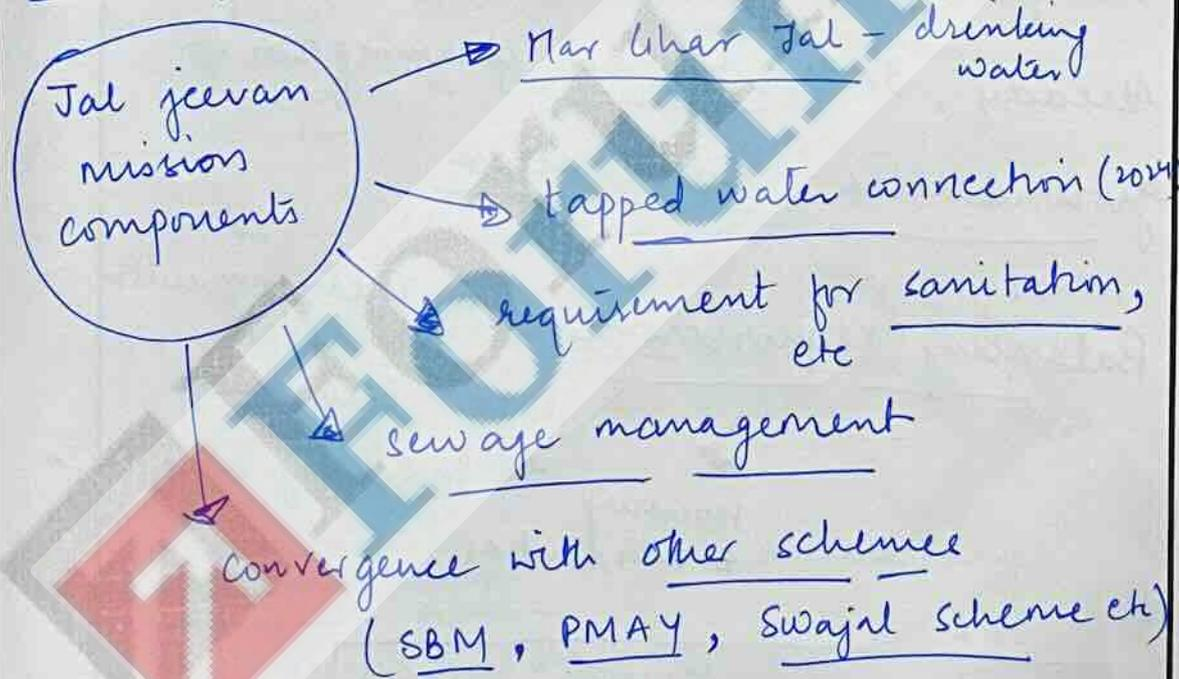 Jal jeevan
mission
components
Har Ghar Jal - drinking
water
tapped water connection (2024
requirement for sanitation,
etc
sewage management
convergence with other schemes
(SBM, PMAY, Swajal scheme etc)
Forum